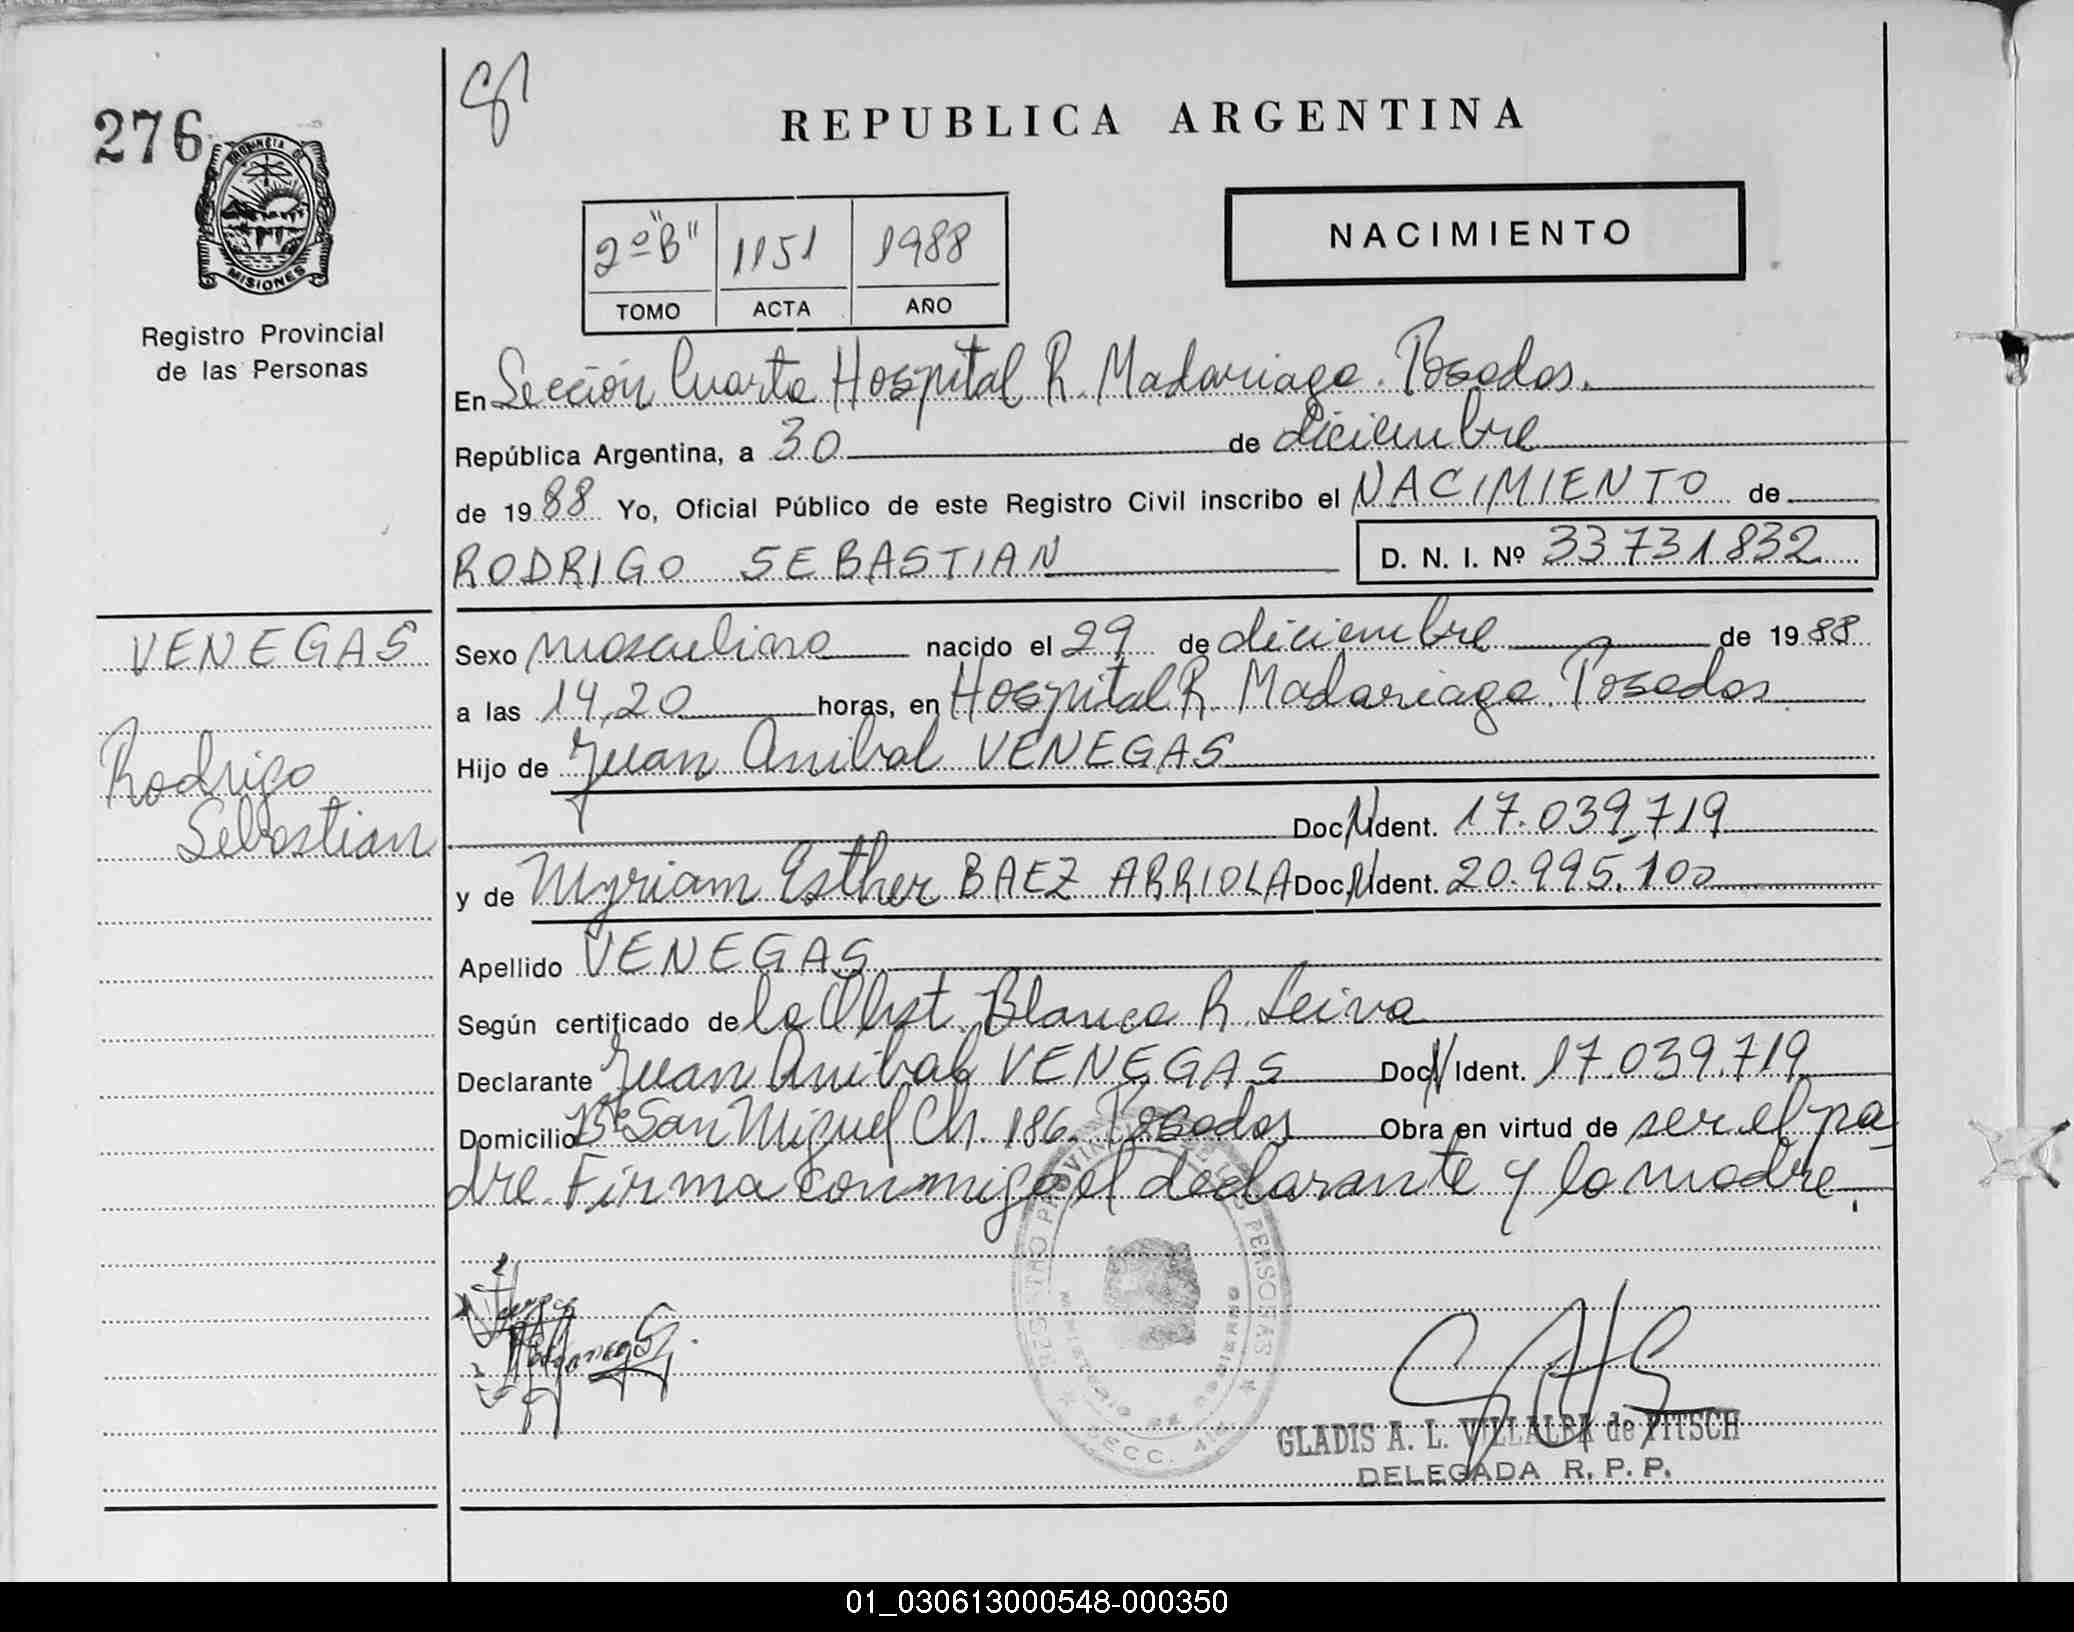 276
PROVINCIA DE
MISIONES
Registro Provincial
de las Personas
REPUBLICA ARGENTINA
2º "B" 1151 1988
TOMO ACTA AÑO
NACIMIENTO
En Sección Cuarta Hospital R. Madariaga. Posadas.
República Argentina, a 30 de diciembre
de 1988 Yo, Oficial Público de este Registro Civil inscribo el NACIMIENTO de
RODRIGO SEBASTIAN D. N. I. Nº 33731832
VENEGAS
Rodrigo
Sebastian
Sexo masculino nacido el 29 de diciembre de 1988
a las 14,20 horas, en Hospital R. Madariaga. Posadas
Hijo de Juan Anibal VENEGAS
Doc. N Ident. 17.039.719
y de Myriam Esther BAEZ ARRIOLA Doc. N Ident. 20.995.100
Apellido VENEGAS
Según certificado de la Obst. Blanca R. Leiva
Declarante Juan Anibal VENEGAS Doc. N Ident. 17.039.719
Domicilio Bº San Miguel Ch. 186. Posadas Obra en virtud de ser el pa
dre. Firma conmigo el declarante y la madre.
REGISTRO PROVINCIAL DE LAS PERSONAS
MINISTERIO DE GOBIERNO
SECC. 4ta
GLADIS A. L. VILLALBA de PITSCH
DELEGADA R. P. P.
01_030613000548-000350